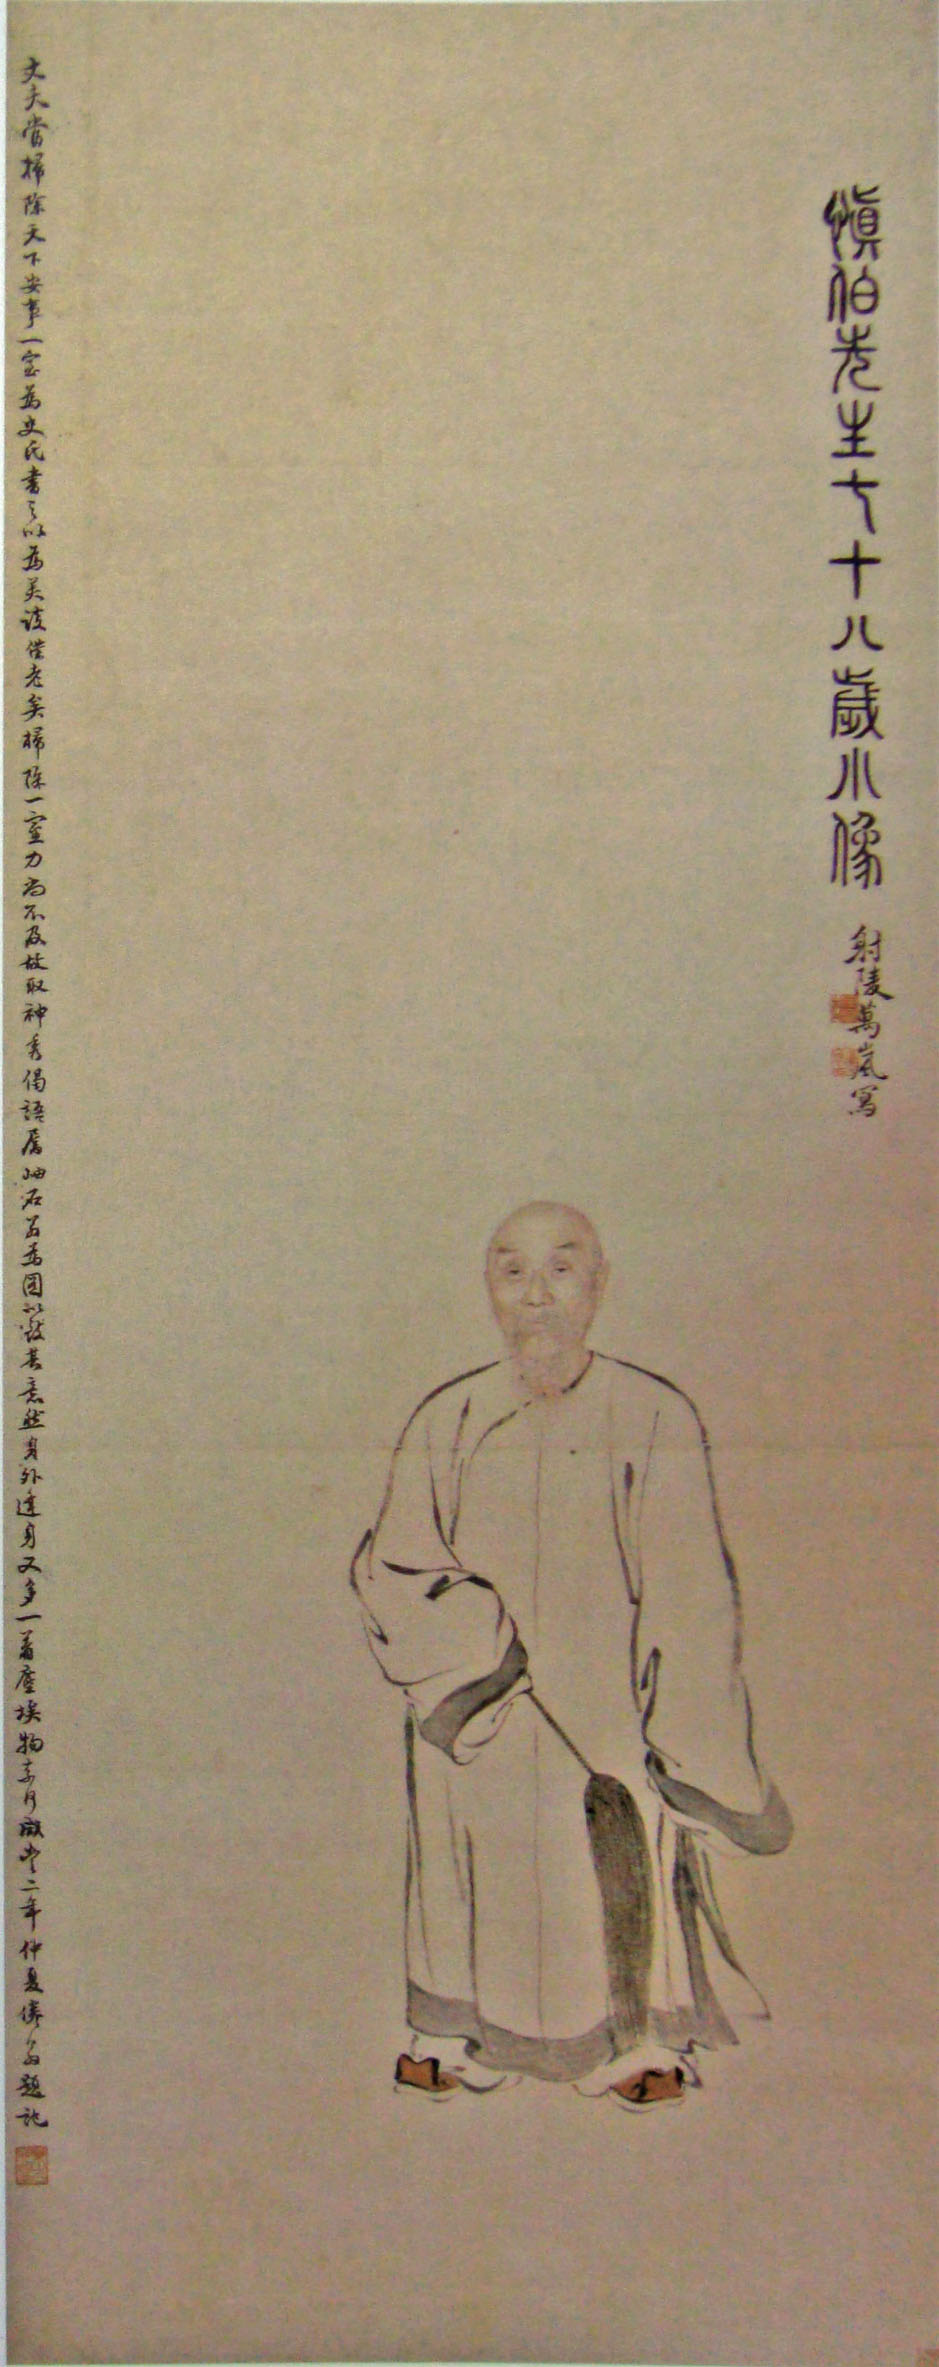 慎伯先生七十八歲小像
射陵萬嵐寫
丈夫當掃除天下安事一室為史氏書之以為美談僕老矣掃除一室力尚不及故取神秀偈語屬岫石為圖以發其意然身外達身又多一著塵埃物事何咸豐二年仲夏倦翁題記